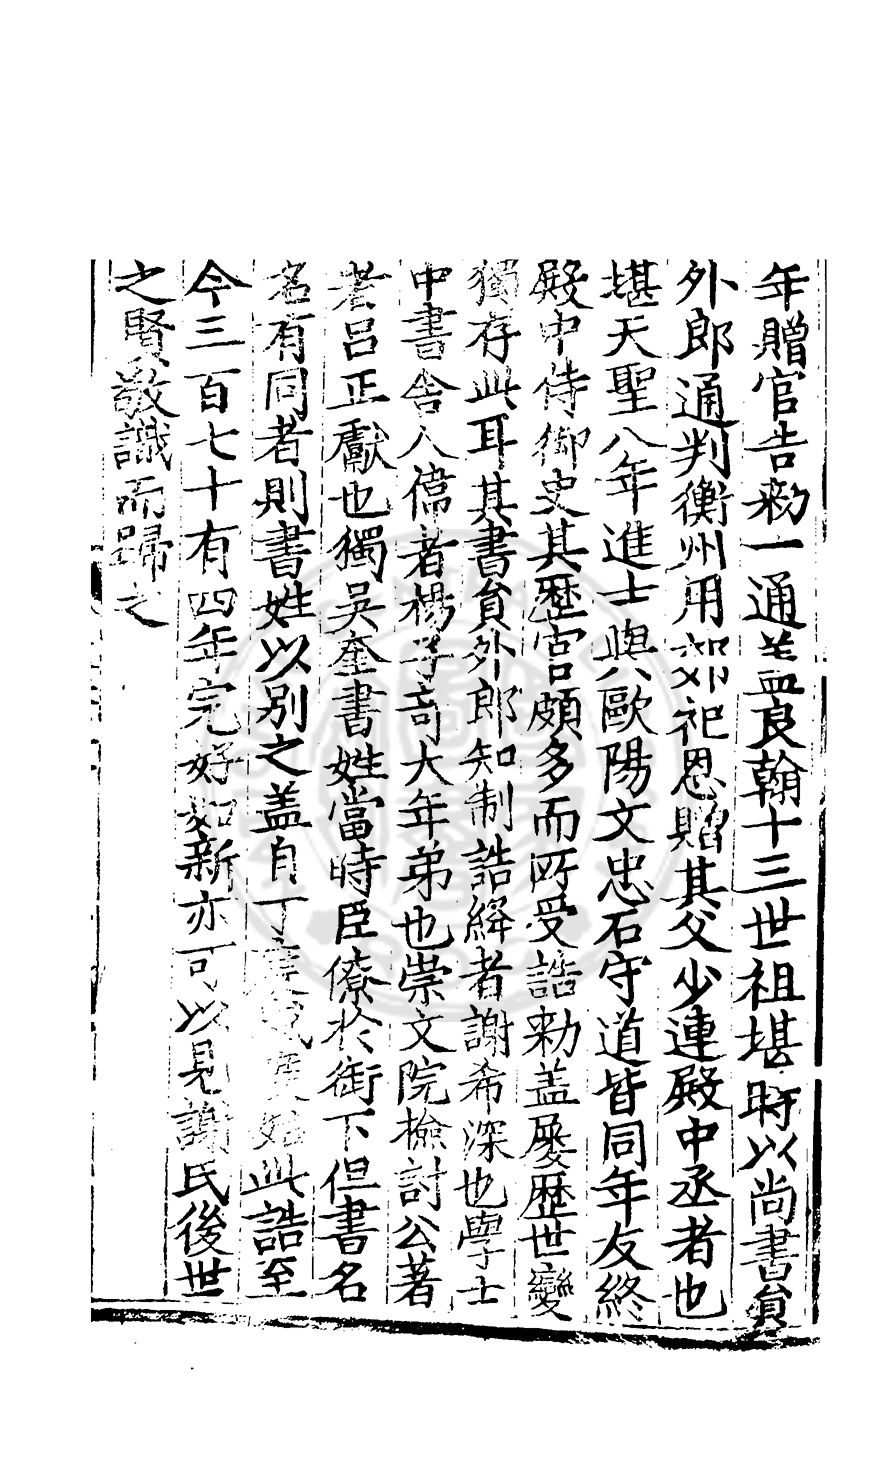 年贈官告勑一通盖良翰十三世祖堪時以尚書貟
外郎通判衡州用郊祀恩贈其父少連殿中丞者也
堪天聖八年進士與歐陽文忠石守道皆同年友終
殿中侍御史其歷官頗多而所受誥勑盖屢歷世變
獨存此耳其書貟外郎知制誥絳者謝希深也學士
中書舍人偉者楊子奇大年弟也崇文院檢討公著
者吕正獻也獨吳奎書姓當時臣僚於銜下但書名
名有同者則書姓以别之盖自丁度始此誥至
今三百七十有四年完好如新亦可以見謝氏後世
之賢敬識而歸之